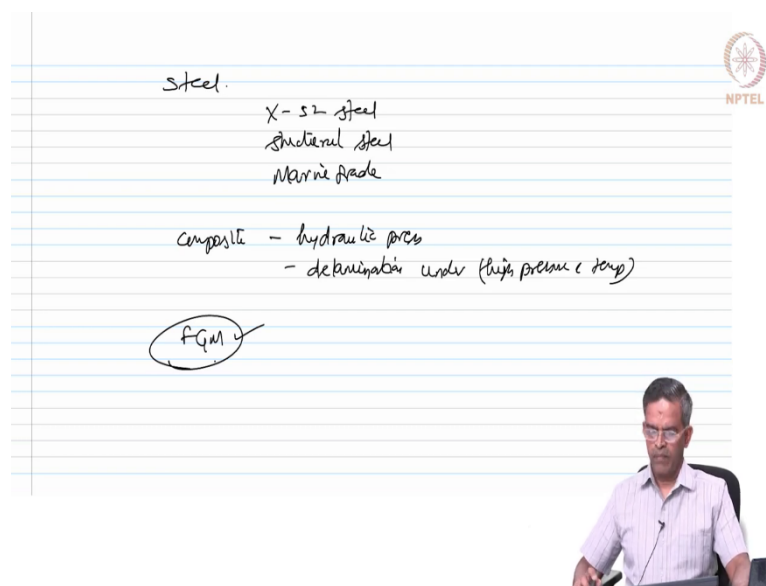 Steel.
X-52 steel
structural steel
Marine grade
NPTEL
composite - hydraulic press
- delamination under (high pressure & temp)
FGM